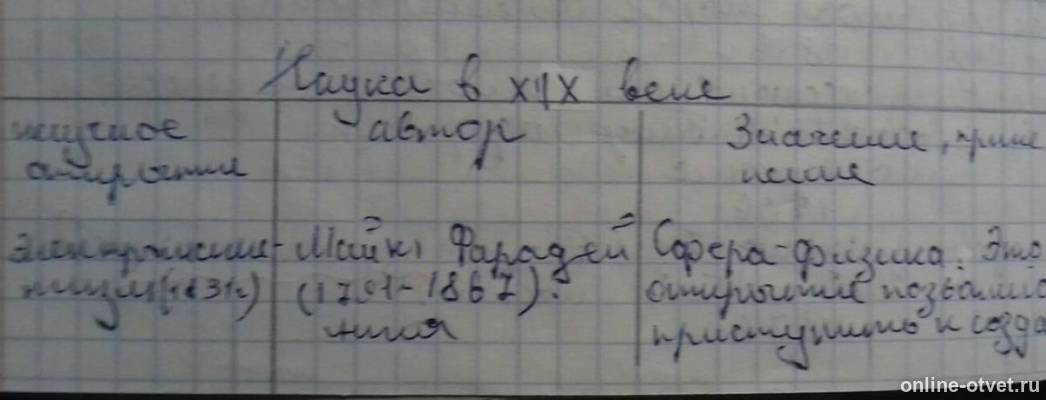 Наука в XIX веке
научное автор Значение, приме
открытие нение
Электромагне- Майкл Фарадей Сфера-физика. Это
тизм (1831г) (1791-1867). открытие позволило
приступить к созда
online-otvet.ru